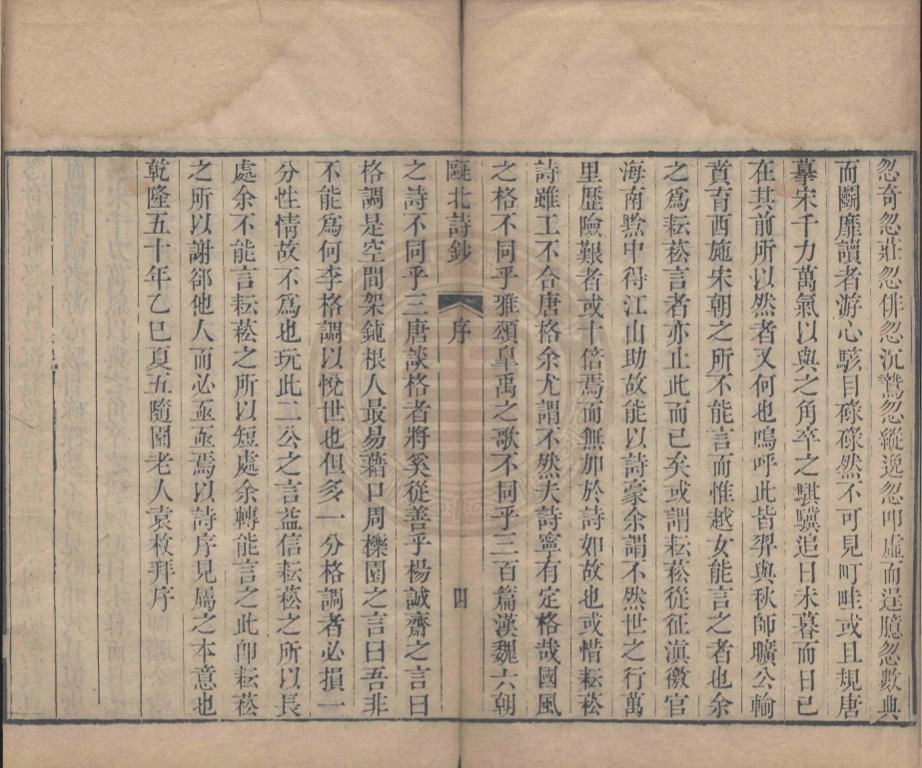 忽奇忽莊忽俳忽沉鷙忽縱逸忽叩虛而逞臆忽數典
而鬭靡讀者游心駭目碌碌然不可見町畦或且規唐
摹宋千力萬氣以與之角卒之騏驥追日未暮而日已
在其前所以然者又何也嗚呼此皆羿與秋師曠公輸
賁育西施宋朝之所不能言而惟越女能言之者也余
之爲耘菘言者亦止此而已矣或謂耘菘從征滇徼官
海南黔中得江山助故能以詩豪余謂不然世之行萬
里歷險艱者或十倍焉而無加於詩如故也或惜耘菘
詩雖工不合唐格余尤謂不然夫詩寧有定格哉國風
之格不同乎雅頌臯禹之歌不同乎三百篇漢魏六朝
甌北詩鈔 序 四
之詩不同乎三唐談格者將奚從善乎楊誠齋之言曰
格調是空間架鈍根人最易藉口周櫟園之言曰吾非
不能爲何李格調以悅世也但多一分格調者必損一
分性情故不爲也玩此二公之言益信耘菘之所以長
處余不能言耘菘之所以短處余轉能言之此卽耘菘
之所以謝郤他人而必亟亟焉以詩序見屬之本意也
乾隆五十年乙巳夏五隨園老人袁枚拜序